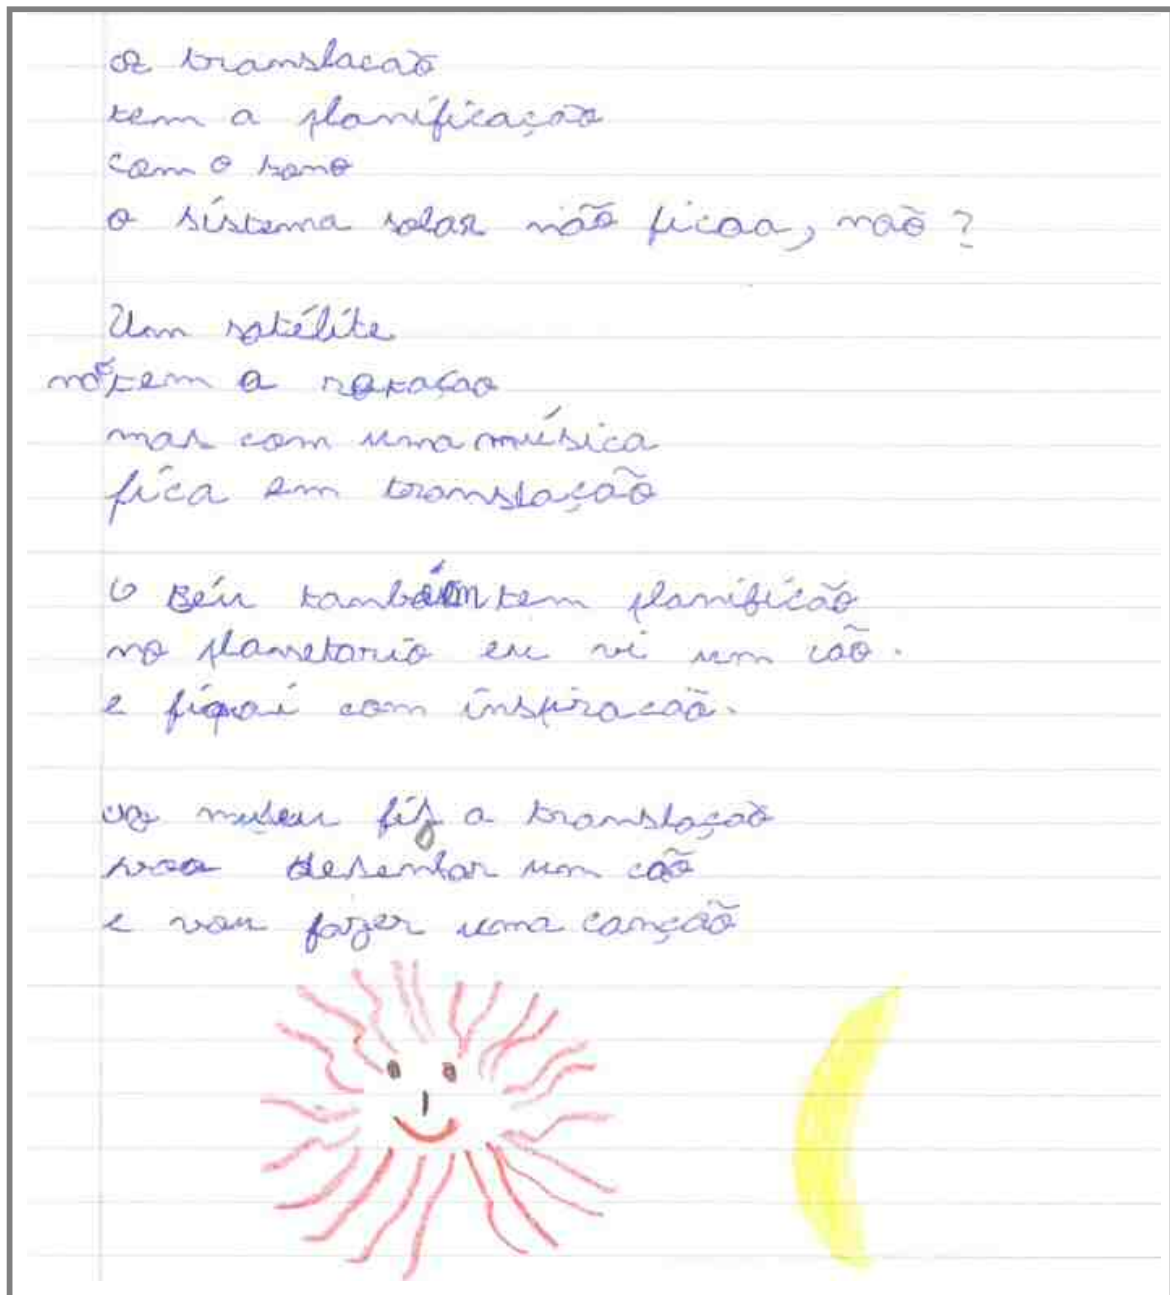 a translacaõ
tem a planificação
com o sono
o sistema solar não ficaa, naõ?
Um satélite
não tem a rotaçao
mas com uma música
fica em translação
O Céu também tem planificão
no planetario eu vi um cão.
e fiquei com inspiracaõ.
museu fiz a translaçaõ
desenhar um caõ
e vou fazer uma cançaõ